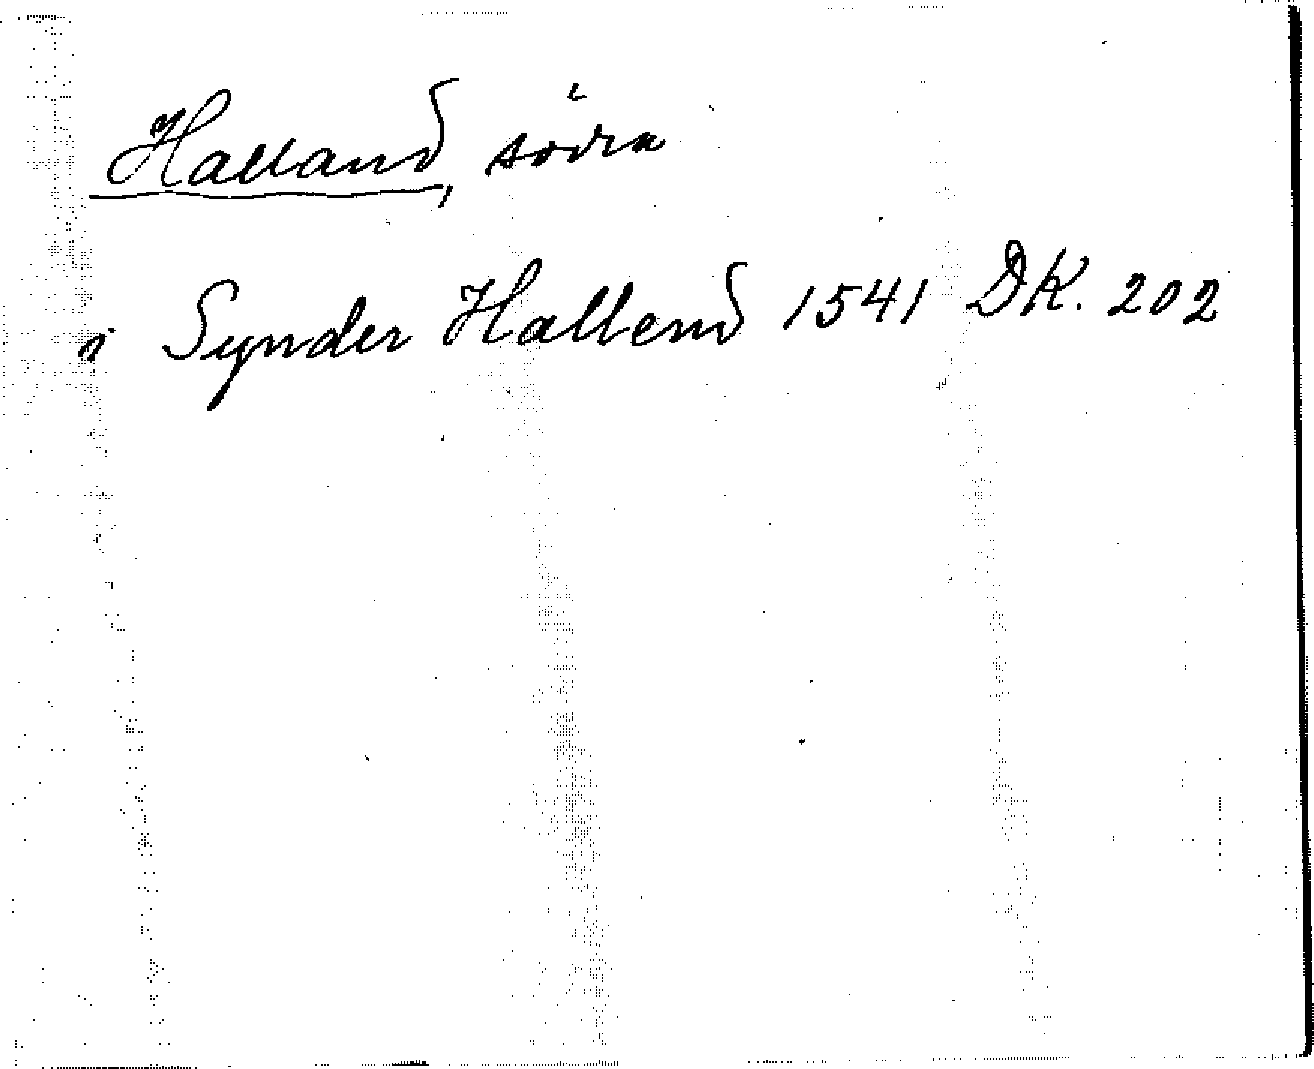 Halland, södra
i Synder Hallend 1541 DK. 202